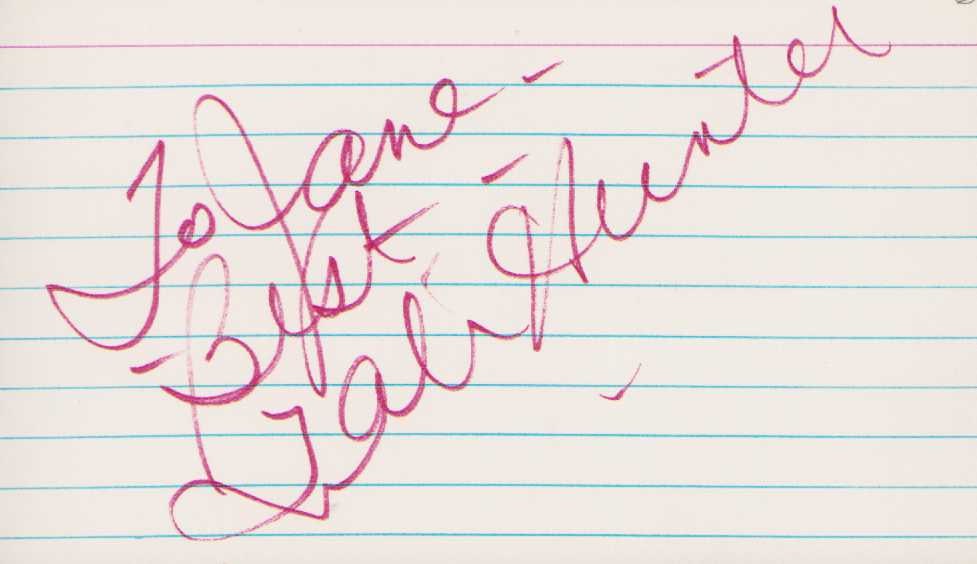 To Jane -
- Best -
Hunter